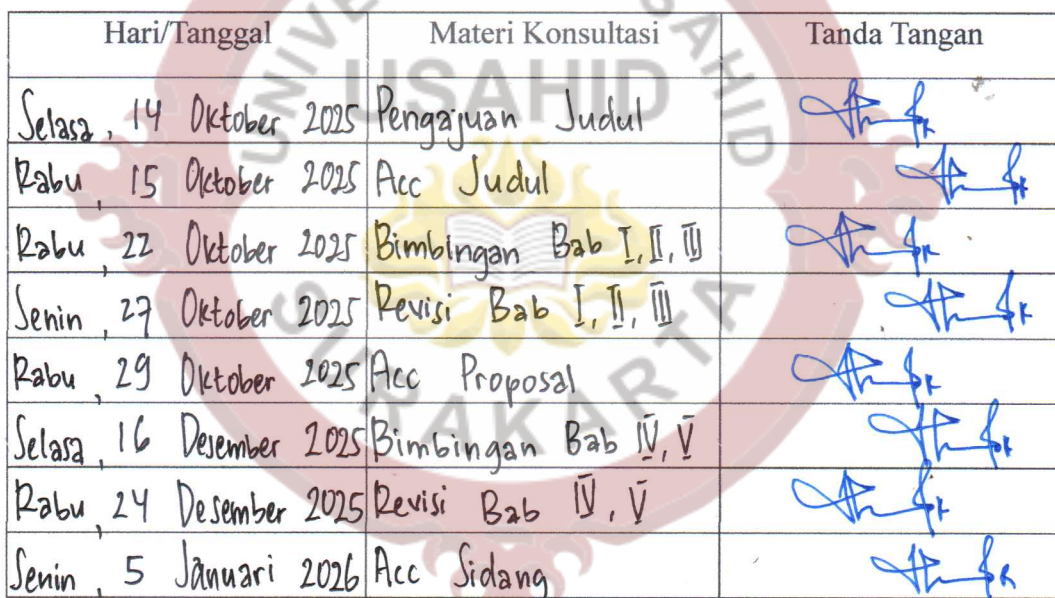 UNIVE SAHID
Hari/Tanggal Materi Konsultasi Tanda Tangan
USAHID
Selasa, 14 Oktober 2025 Pengajuan Judul
Rabu, 15 Oktober 2025 Acc Judul
Rabu, 22 Oktober 2025 Bimbingan Bab I, II, III
Senin, 27 Oktober 2025 Revisi Bab I, II, III
Rabu, 29 Oktober 2025 Acc Proposal
SURAKARTA
Selasa, 16 Desember 2025 Bimbingan Bab IV, V
Rabu, 24 Desember 2025 Revisi Bab IV, V
Senin, 5 Januari 2026 Acc Sidang